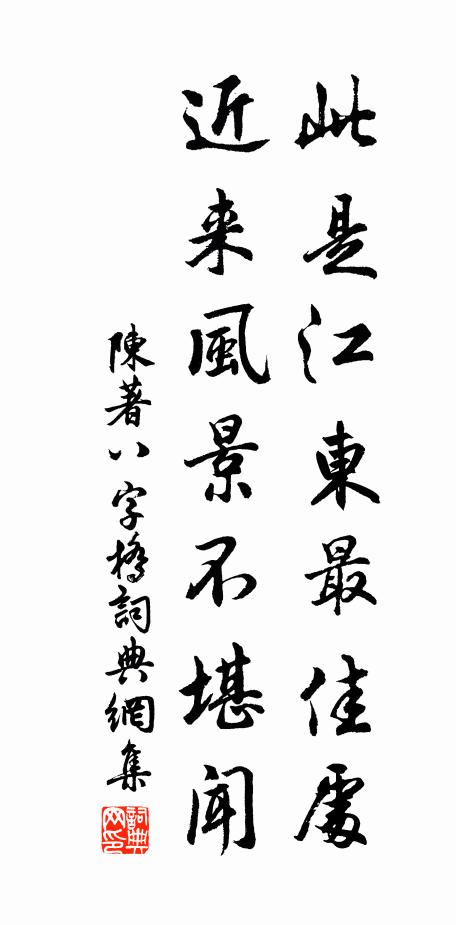 此是江東最佳處
近来風景不堪聞
陳著八字橋詞典網集
詞典網印